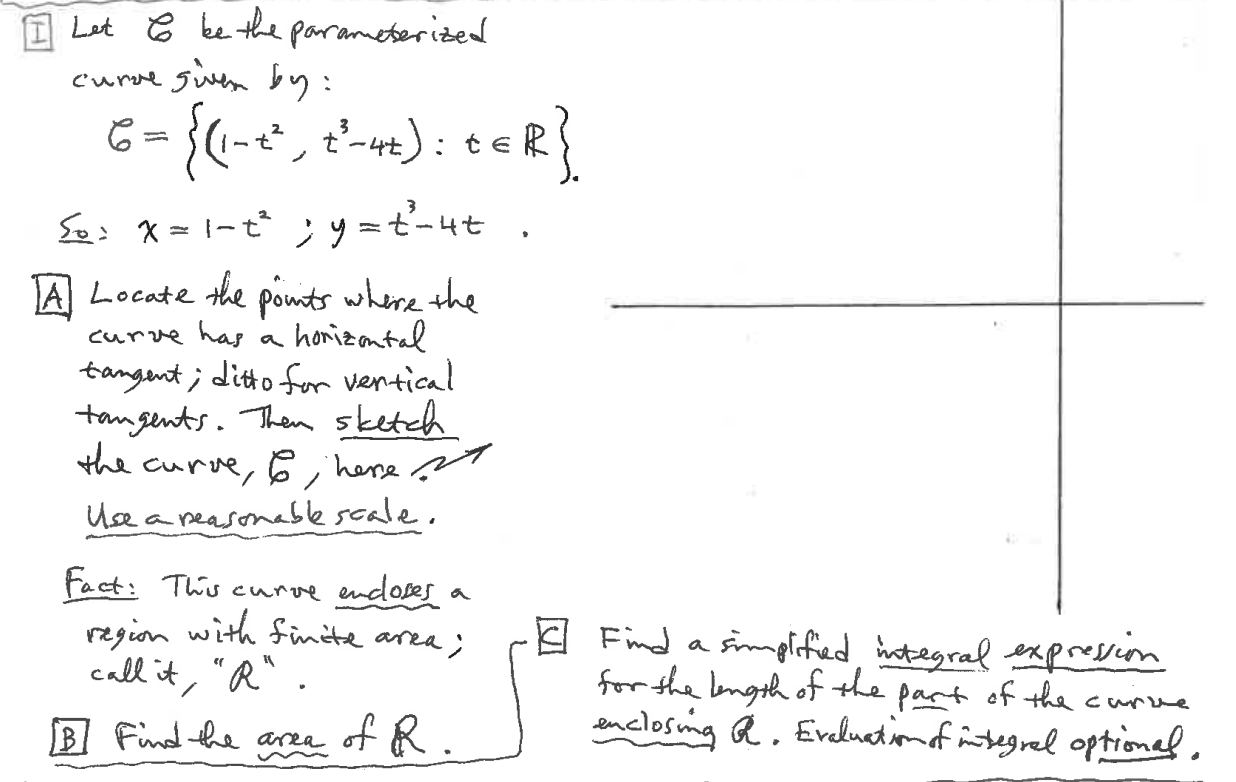 I Let C be the parameterized
curve given by:
C = {(1-t², t³-4t) : t ∈ ℝ}.
So: x = 1-t² ; y = t³-4t .
A Locate the points where the
curve has a horizontal
tangent; ditto for vertical
tangents. Then sketch
the curve, C, here
Use a reasonable scale.
Fact: This curve encloses a
region with finite area;
call it, "R".
B Find the area of R.
C Find a simplified integral expression
for the length of the part of the curve
enclosing R. Evaluation of integral optional.